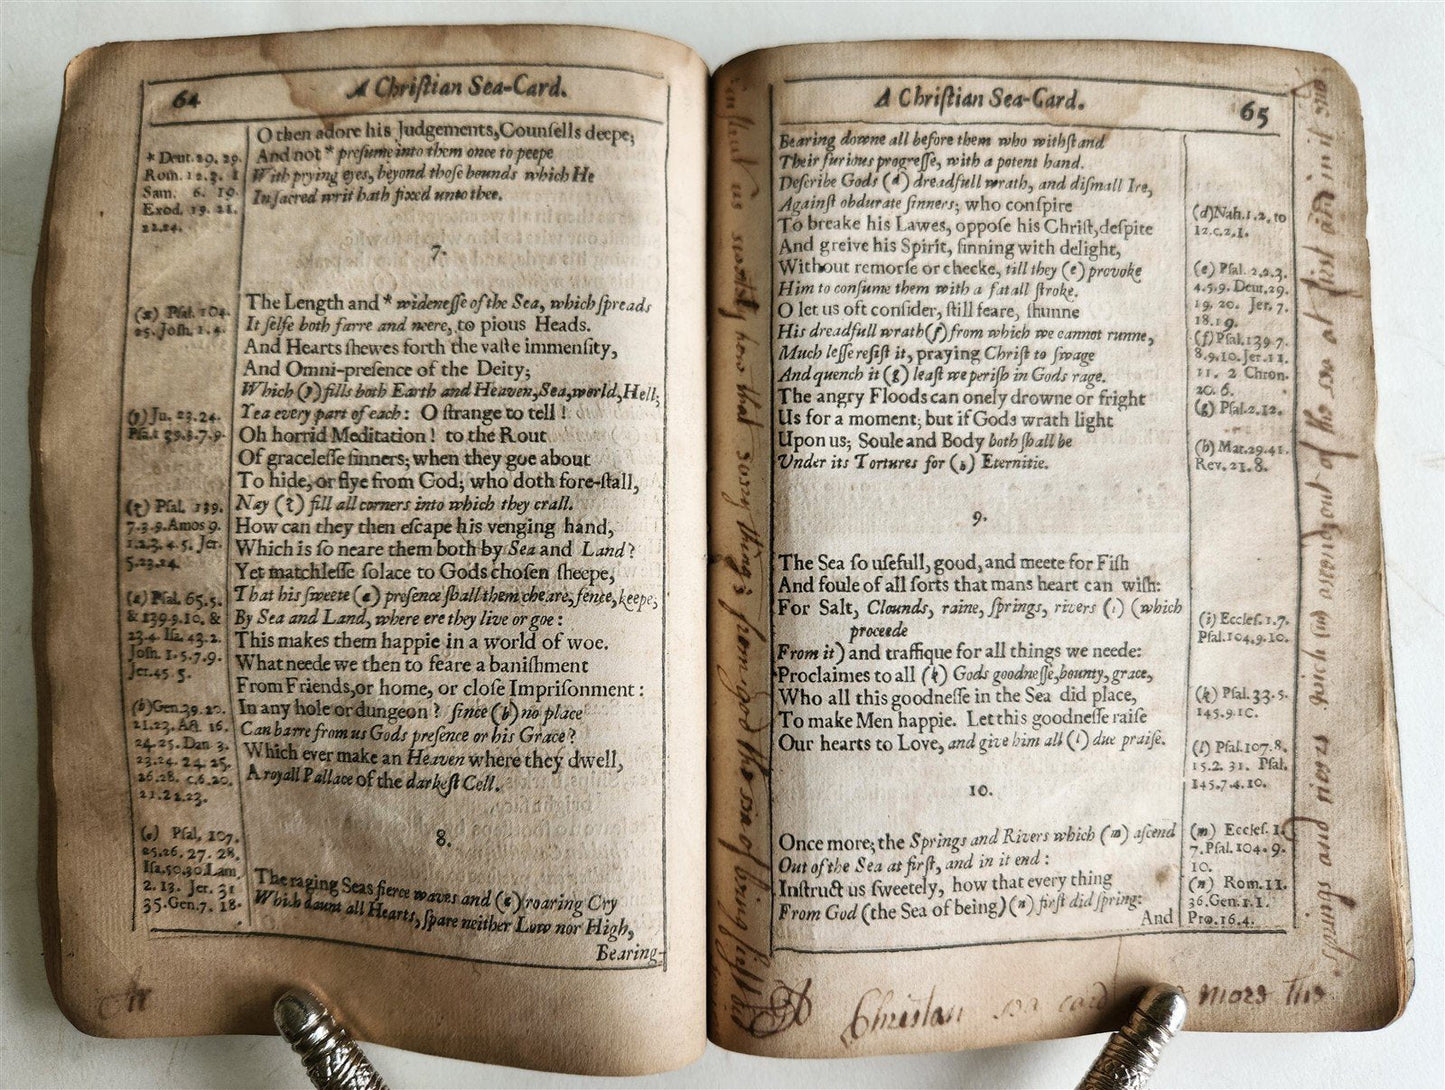 64 A Chriſtian Sea-Card.
O then adore his Judgements, Counſells deepe;
And not * preſume into them once to peepe
With prying eyes, beyond thoſe bounds which He
In ſacred writ hath fixed unto thee.
* Deut. 29. 29.
Rom. 12. 3. 1
Sam. 6. 19.
Exod. 19. 21.
22.24.
7.
The Length and * wideneſſe of the Sea, which ſpreads
It ſelfe both farre and neere, to pious Heads.
And Hearts ſhewes forth the vaſte immenſity,
And Omni-preſence of the Deity;
Which (y) fills both Earth and Heaven, Sea, world, Hell,
Yea every part of each: O ſtrange to tell!
Oh horrid Meditation! to the Rout
Of graceleſſe ſinners; when they goe about
To hide, or flye from God; who doth fore-ſtall,
Nay (z) fill all corners into which they crall.
How can they then eſcape his venging hand,
Which is ſo neare them both by Sea and Land?
Yet matchleſſe ſolace to Gods choſen ſheepe,
That his ſweete (a) preſence ſhall them cheare, fence, keepe;
By Sea and Land, where ere they live or goe:
This makes them happie in a world of woe.
What neede we then to feare a baniſhment
From Friends, or home, or cloſe Impriſonment:
In any hole or dungeon? ſince (b) no place
Can barre from us Gods preſence or his Grace?
Which ever make an Heaven where they dwell,
A royall Pallace of the darkeſt Cell.
(x) Pſal. 104.
25. Joſh. 1. 4.
(y) Ju. 23.24.
Pſal. 39.3.7.9.
(z) Pſal. 139.
7.3.9. Amos 9.
1.2.3.4.5. Jer.
5.23.24.
(a) Pſal. 65.5.
& 139.9.10. &
23.4. Iſa. 43.2.
Joſh. 1.5.7.9.
Jer. 45 5.
(b) Gen. 39.20.
21.23. Act. 16.
24.25. Dan 3.
23.24. 24. 25.
26.28. c.6.20.
21.22.23.
8.
The raging Seas fierce waves and (c) roaring Cry
Which daunt all Hearts, ſpare neither Low nor High,
Bearing
(c) Pſal. 107.
25.26. 27. 28.
Iſa. 50.30. Lam,
2. 13. Jer. 31
35. Gen. 7. 18.
A Chriſtian Sea-Card. 65
Bearing downe all before them who withſtand
Their furious progreſſe, with a potent hand.
Deſcribe Gods (d) dreadfull wrath, and diſmall Ire,
Againſt obdurate ſinners; who conſpire
To breake his Lawes, oppoſe his Chriſt, deſpite
And greive his Spirit, ſinning with delight,
Without remorſe or checke, till they (e) provoke
Him to conſume them with a fatall ſtroke.
O let us oft conſider, ſtill feare, ſhunne
His dreadfull wrath (f) from which we cannot runne,
Much leſſe reſiſt it, praying Chriſt to ſwage
And quench it (g) leaſt we periſh in Gods rage.
The angry Floods can onely drowne or fright
Us for a moment; but if Gods wrath light
Upon us; Soule and Body both ſhall be
Under its Tortures for (h) Eternitie.
(d) Nah. 1. 2. to
12. c. 2, 1.
(e) Pſal. 2.2.3.
4.5.9. Deut. 29.
19. 20. Jer. 7.
18.19.
(f) Pſal. 139 7.
8.9.10. Jer. 11.
11. 2 Chron.
20. 6.
(g) Pſal. 2. 12.
(h) Mat. 29.41.
Rev. 21. 8.
9.
The Sea ſo uſefull, good, and meete for Fiſh
And foule of all ſorts that mans heart can wiſh:
For Salt, Clounds, raine, ſprings, rivers (i) (which
proceede
From it) and traffique for all things we neede:
Proclaimes to all (k) Gods goodneſſe, bounty, grace,
Who all this goodneſſe in the Sea did place,
To make Men happie. Let this goodneſſe raiſe
Our hearts to Love, and give him all (l) due praiſe.
(i) Eccleſ. 1. 7.
Pſal. 104. 9. 10.
(k) Pſal. 33. 5.
145. 9. 10.
(l) Pſal. 107. 8.
15. 2. 31. Pſal.
145. 7. 4. 10.
10.
Once more; the Springs and Rivers which (m) aſcend
Out of the Sea at firſt, and in it end:
Inſtruct us ſweetely, how that every thing
From God (the Sea of being) (n) firſt did ſpring:
And
(m) Eccleſ. 1.
7. Pſal. 104. 9.
10.
(n) Rom. 11.
36. Gen. 1. 1.
Pro. 16. 4.
A Christian sea card more the
springs and rivers which (m) asend out of the sea at first and in it end
instruct us sweetly how that every thing from god the sea of being first did